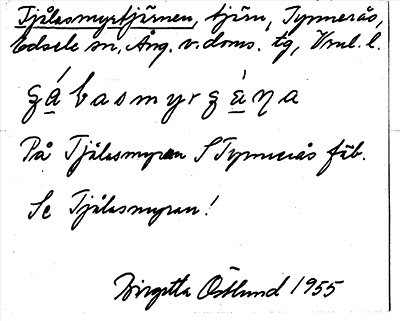 Tjålasmyrtjärnen, tjärn, Tynnerås,
Edsele sn, Ång. v. doms. tg, Vrul. l.
På Tjålasmyran S Tynnerås fäb.
Se Tjålasmyran!
Birgitta Östlund 1955